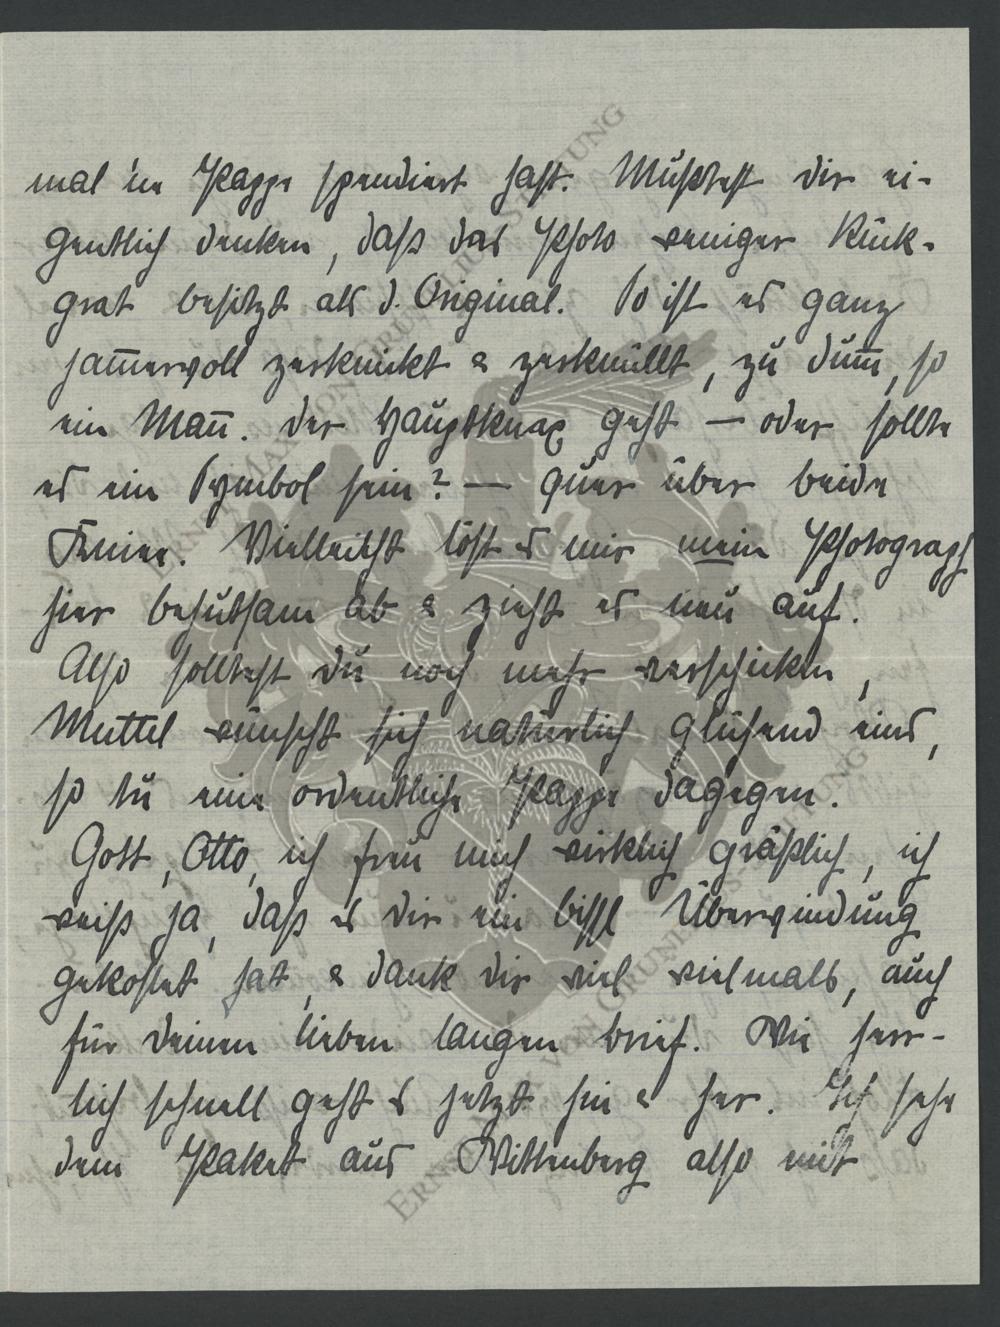 mal 'ne Pappe spendiert hast. Müßtest dir ei-
gentlich denken, daß das Photo weniger Rück-
grat besitzt als d. Original. So ist es ganz
jam̅ervoll zerknickt & zerknüllt, zu dum̅, so
ein Man̅. Der Hauptknax geht — oder sollte
es ein Symbol sein? — quer über beide
Kniee. Vielleicht löst es mir mein Photograph
hier behutsam ab & zieht es neu auf.
Also solltest du noch mehr verschicken,
Muttel wünscht sich natürlich glühend eins,
so tu eine ordentliche Pappe dagegen.
Gott, Otto, ich freu mich wirklich gräßlich, ich
weiß ja, daß es dir ein bissl Überwindung
gekostet hat, & dank dir viel vielmals, auch
für deinen lieben langen Brief. Wie herr-
lich schnell geht es jetzt hin & her. Ich sehe
dem Paket aus Wittenberg also mit
ERNST MAX VON GRUNELIUS-STIFTUNG
ERNST MAX VON GRUNELIUS-STIFTUNG